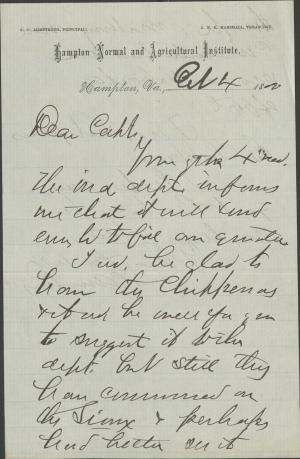 S. C. ARMSTRONG, PRINCIPAL. J. F. B. MARSHALL, TREASURER.
Hampton Normal and Agricultural Institute.
Hampton, Va., Oct 4 188
Dear Capt,
Your of the 4" rec.
The ind dept. informs
me that it will send
enough to fill our
I wd. be glad to
have the Chippewas
& it wd be well for you
to suggest it to the
dept. but still they
have commenced on
the Sioux & perhaps
had better